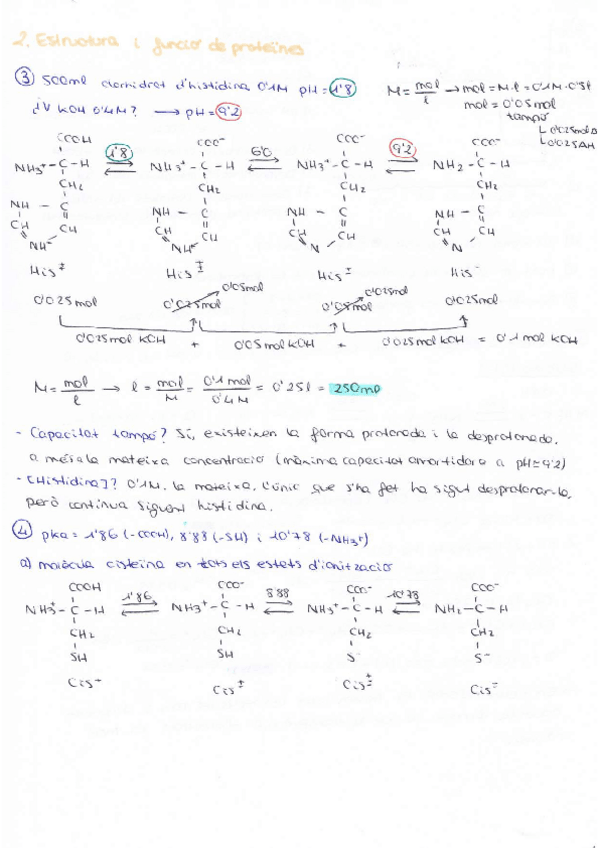 2. Estructura i funció de proteïnes
③ 500ml clorhidrat d'histidina 0'1M pH = 1'8
M = mol/l → mol = M·l = 0'1M·0'5l
mol = 0'05mol
¿V KOH 0'4M? → pH = 9'2
tampó
0'025mol
0'025AH
COOH COO⁻ COO⁻ COO⁻
1'8 6'0 9'2
NH3⁺ - C - H NH3⁺ - C - H NH3⁺ - C - H NH2 - C - H
CH2 CH2 CH2 CH2
NH - C NH - C NH - C NH - C
CH CH CH CH
NH⁺ CH NH⁺ CH N CH N CH
His His His ± His ⁻
0'05mol 0'05mol
0'025mol 0'025mol 0'05mol 0'025mol
0'025mol KOH + 0'05mol KOH + 0'025mol KOH = 0'1 mol KOH
M = mol/l → l = mol/M = 0'1 mol/0'4M = 0'25l = 250ml
- Capacitat tampó? Sí, existeixen la forma protonada i la desprotonada,
a més a la mateixa concentració (màxima capacitat amortidora a pH = 9'2)
- [Histidina]? 0'1M. la mateixa, l'únic que s'ha fet ha sigut desprotonar-la,
però continua siguent histidina.
④ pka = 1'86 (-COOH), 8'88 (-SH) i 10'78 (-NH3⁺)
a) molècula cisteïna en tots els estets d'ionització
COOH COO⁻ COO⁻ COO⁻
1'86 8'88 10'78
NH3⁺ - C - H NH3⁺ - C - H NH3⁺ - C - H NH2 - C - H
CH2 CH2 CH2 CH2
SH SH S⁻ S⁻
Cis Cis ± Cis Cis